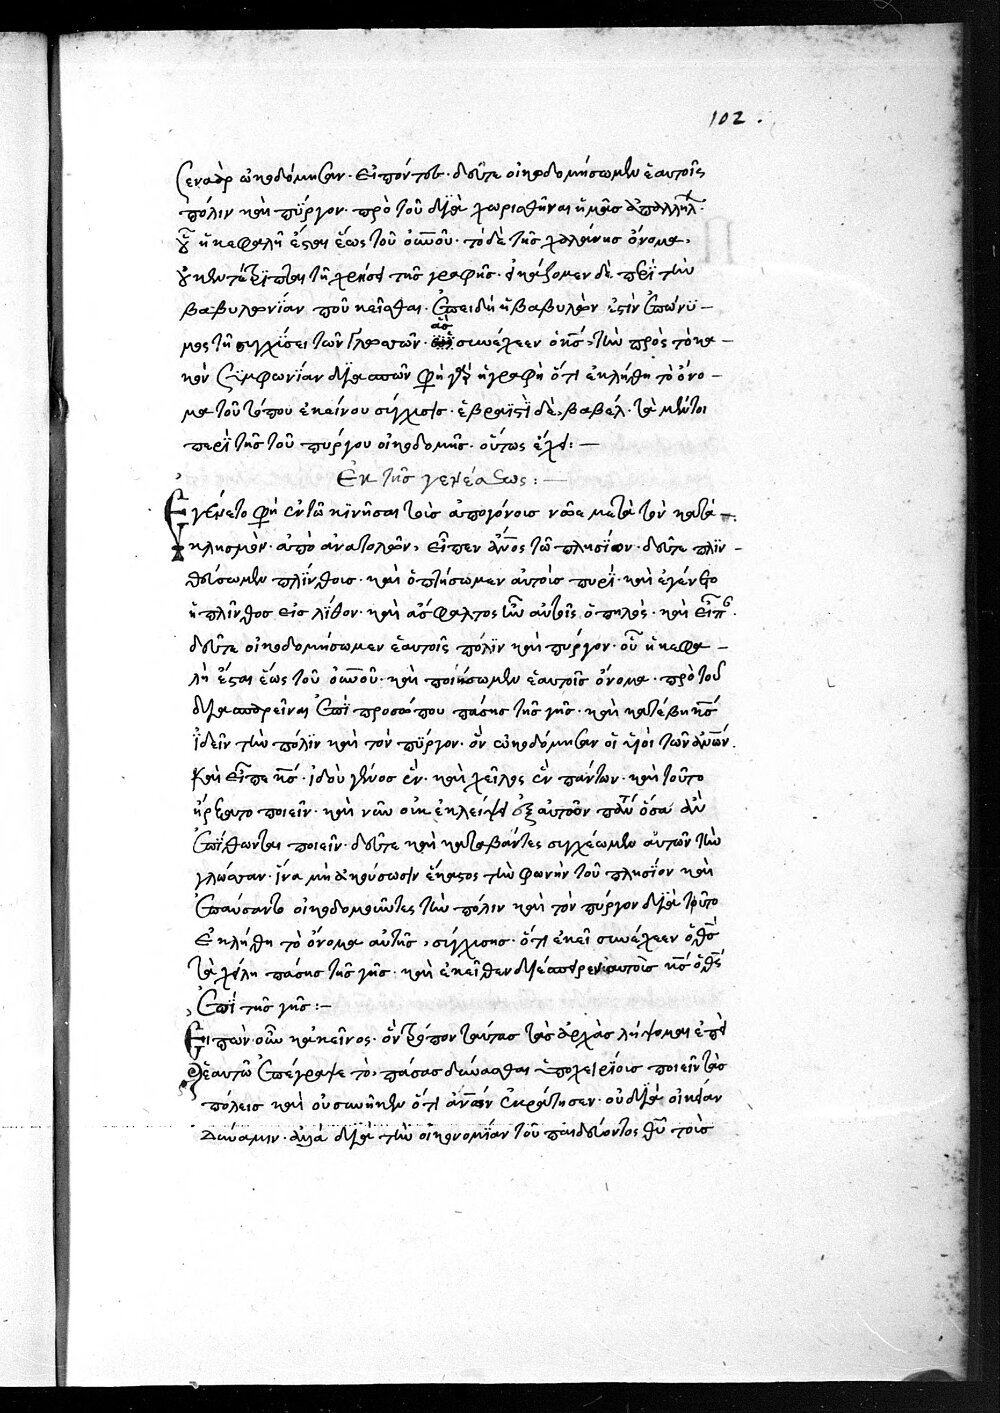 102.
Σεναὰρ ὠκοδόμησαν. εἰπόντες. δεῦτε οἰκοδομήσωμεν ἑαυτοῖς
πόλιν καὶ πύργον. πρὸ τοῦ διαχωρισθῆναι ἡμᾶς ἀπ' ἀλλήλ.
οὗ ἡ κεφαλὴ ἔσται ἕως τοῦ οὐνοῦ. τὸ δὲ τῆς χαλάνης ὄνομα,
τῆς γραφῆς. εἰκάζομεν δὲ περὶ τὴν
βαβυλωνίαν που κεῖσθαι. ἐπειδὴ ἡ βαβυλὼν ἐστὶν ἐπώνυ-
μος τῇ συγχύσει τῶν γλωσσῶν. ὡς συνέχεεν ὁ κς, τὴν πρὸς τὸ κα-
κὸν συμφωνίαν διαστῶν φησὶ γὰρ ἡ γραφὴ ὅτι ἐκλήθη τὸ ὄνο-
μα τοῦ τόπου ἐκείνου σύγχυσις. ἑβραϊστὶ δὲ, βαβέλ. τὰ μέντοι
περὶ τῆς τοῦ πύργου οἰκοδομῆς. οὕτως ἔχει:—
Ἐκ τῆς γενέσεως:—
Ἐγένετο φησὶ ἐν τῷ κινῆσαι τοὺς ἀπογόνους νῶε μετὰ τὸν κατα-
κλυσμὸν. ἀπὸ ἀνατολῶν, εἶπεν ἄνος τῷ πλησίον. δεῦτε πλιν-
θεύσωμεν πλίνθους. καὶ ὀπτήσωμεν αὐτοὺς πυρί. καὶ ἐγένετο
ἡ πλῖνθος εἰς λίθον. καὶ ἄσφαλτος ἦν αὐτοῖς ὁ πηλός. καὶ εἶπον.
δεῦτε οἰκοδομήσωμεν ἑαυτοῖς πόλιν καὶ πύργον. οὗ ἡ κεφα-
λὴ ἔσται ἕως τοῦ οὐνοῦ. καὶ ποιήσωμεν ἑαυτοῖς ὄνομα. πρὸ τοῦ
διασπαρεῖναι ἐπὶ προσώπου πάσης τῆς γῆς. καὶ κατέβη κς
ἰδεῖν τὴν πόλιν καὶ τὸν πύργον. ὃν ὠκοδόμησαν οἱ υἱοὶ τῶν ἀνων.
Καὶ εἶπε κς. ἰδοὺ γένος ἕν. καὶ χεῖλος ἓν πάντων. καὶ τοῦτο
ἤρξατο ποιεῖν. καὶ νῦν οὐκ ἐκλείψει ἐξ αὐτῶν πάντ ὅσα ἂν
ἐπιθῶνται ποιεῖν. δεῦτε καὶ καταβάντες συγχέωμεν αὐτῶν τὴν
γλῶσσαν. ἵνα μὴ ἀκούσωσιν ἕκαστος τὴν φωνὴν τοῦ πλησίον καὶ
ἐπαύσαντο οἰκοδομοῦντες τὴν πόλιν καὶ τὸν πύργον διὰ τοῦτο
ἐκλήθη τὸ ὄνομα αὐτῆς, σύγχυσις. ὅτι ἐκεῖ συνέχεεν ὁ θς
τὰ χείλη πάσης τῆς γῆς. καὶ ἐκεῖθεν διέσπειρεν αὐτοὺς κς ὁ θς
ἐπὶ τῆς γῆς:—
Εἰπὼν οὖν κἀκεῖνος. ὃν τρόπον ταύτας τὰς ἀρχὰς λήψομαι
ἑαυτῷ ἐπέγραψε τὸ, πάσας δύνασθαι ὑποχειρίους ποιεῖν τὰς
πόλεις καὶ οὐ συνῆκεν ὅτι ἐκράτησεν. οὐ διὰ οἰκείαν
δύναμιν. ἀλλὰ διὰ τὴν οἰκονομίαν τοῦ παιδεύοντος θῦ τοὺς